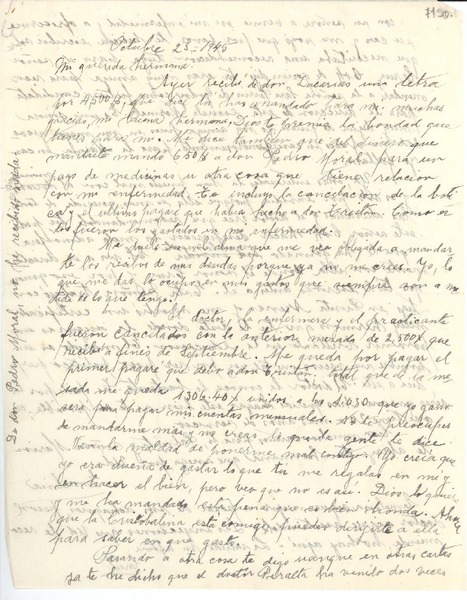 1195.
Octubre 23-1946
Mi querida hermana:
Ayer recibí de don Zacarías una letra
por 4.500$, que tú has mandado para mí, muchas
gracias mi buena hermana. Dios te premie la bondad que
tienes para mí. Me dice también que del dinero que
mandaste mandó 650$ a don Pedro Moral para un
pago de medicinas u otra cosa que tiene relación
con mi enfermedad. Te incluyo la cancelación de la boti
ca y el último pagaré que había hecho a don Cristián. Como
fueron los gastados en mi enfermedad.
Me duele en el alma que me vea obligada a mandar
te los recibos de mis deudas porque ya no me crees. Yo, lo
que me das lo ocupo en mis gastos que siempre van a me
dida de lo que tengo.
El doctor, la enfermera y el practicante
fueron cancelados con la anterior mesada de 2.500$ que
recibí a fines de Septiembre. Me queda por pagar el
primer pagaré que debo a don total que de la me
sada me queda 1.306.40$ unidos a los 1.630 que yo gano
será para pagar mis cuentas mensuales. No te preocupes
de mandarme más y no creas lo que la gente te dice.
Vea la maldad de ponerme mal contigo. Yo creía que
yo era dueña de gastar lo que tú me regalas en mí y
en hacer el bien, pero veo que no es así. Dios lo quiere
y me ha mandado esta pena que es bien honda. Ahora
que la está conmigo puedes dirigirte a ella
para saber en que gasto.
Pasando a otra cosa te digo aunque en otras cartas
ya te he dicho que el doctor Peralta ha venido dos veces
De don Pedro Moral no he recibido nada.